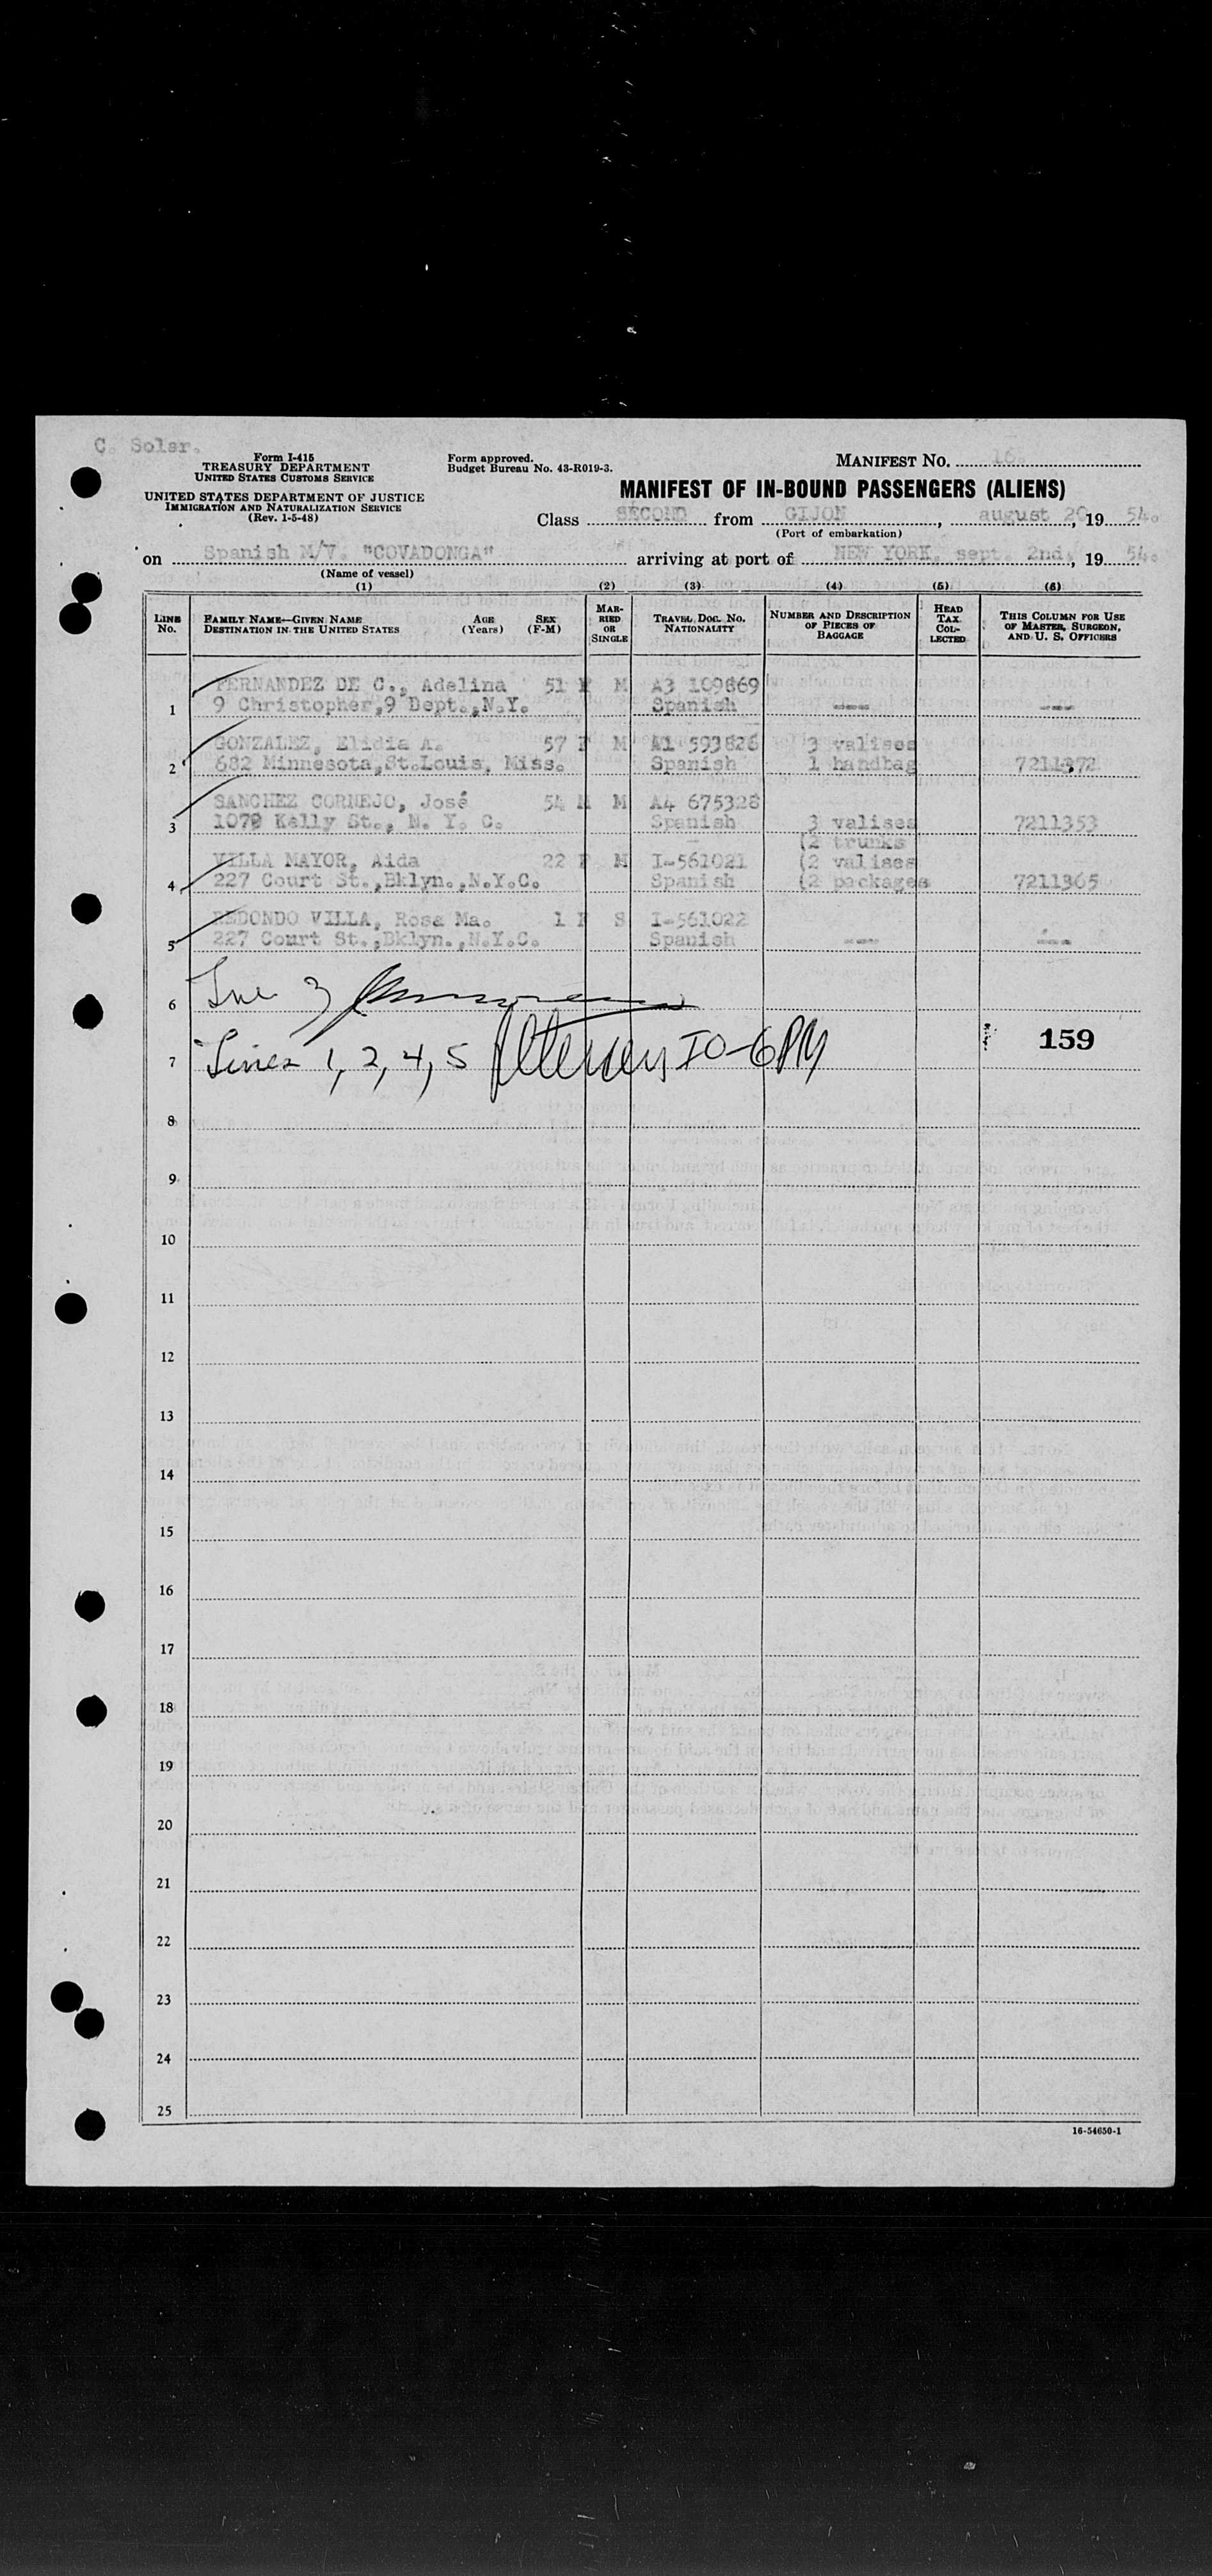 C. Solar.
Form I-415
TREASURY DEPARTMENT
UNITED STATES CUSTOMS SERVICE
UNITED STATES DEPARTMENT OF JUSTICE
IMMIGRATION AND NATURALIZATION SERVICE
(Rev. 1-5-48)
Form approved.
Budget Bureau No. 43-R019-3.
MANIFEST NO. 16.
MANIFEST OF IN-BOUND PASSENGERS (ALIENS)
Class SECOND from GIJON, august 20, 19 54.
(Port of embarkation)
on Spanish M/V. "COVADONGA" arriving at port of NEW YORK, sept. 2nd, 19 54.
(Name of vessel)
(1) (2) (3) (4) (5) (6)
LINE NO. FAMILY NAME—GIVEN NAME DESTINATION IN THE UNITED STATES AGE (Years) SEX (F-M) MARRIED OR SINGLE TRAVEL DOC. NO. NATIONALITY NUMBER AND DESCRIPTION OF PIECES OF BAGGAGE HEAD TAX COLLECTED THIS COLUMN FOR USE OF MASTER, SURGEON, AND U. S. OFFICERS
FERNANDEZ DE C., Adelina 51 F M A3 109869
1 9 Christopher,9 Dept.,N.Y. Spanish ---- ----
GONZALEZ, Elidia A. 57 F M A1 593826 3 valises
2 682 Minnesota,St.Louis, Miss. Spanish 1 handbag 7211372
SANCHEZ CORNEJO, José 54 M M A4 675328
3 1079 Kelly St., N. Y. C. Spanish 3 valises 7211353
(2 trunks
VILLA MAYOR, Aida 22 F M I-561021 (2 valises
4 227 Court St.,Bklyn.,N.Y.C. Spanish (2 packages 7211365
REDONDO VILLA, Rosa Ma. 1 F S I-561022
5 227 Court St.,Bklyn.,N.Y.C. Spanish ---- ----
6 Line 3
7 Lines 1, 2, 4, 5 IO-6PM 159
8
9
10
11
12
13
14
15
16
17
18
19
20
21
22
23
24
25
16-54650-1